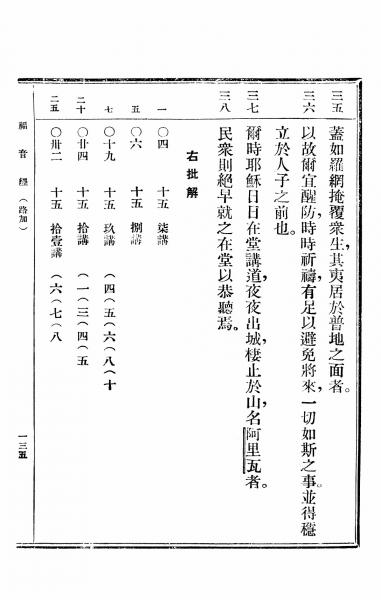 三五 蓋如羅網掩覆衆生，其夷居於普地之面者。
三六 以故爾宜醒防，時時祈禱，有足以避免將來，一切如斯之事，並得穩
立於人子之前也。
三七 爾時耶穌日日在堂講道，夜夜出城，棲止於山名阿里瓦者。
三八 民衆則絕早就之在堂以恭聽焉。
右批解
一 〇四 十五 柒講
五 〇六 十五 捌講
七 〇十九 十五 玖講 （四（五（六（八（十
二十 〇廿四 十五 拾講 （一（三（四（五
二五 〇卅二 十五 拾壹講 （六（七（八
福音經（路加） 一三五